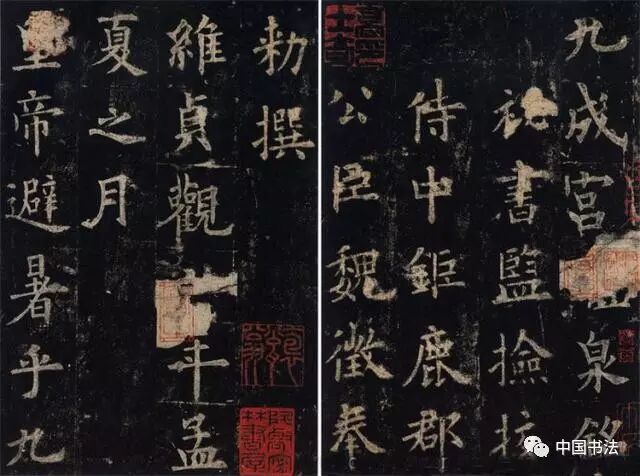 九成宮泉銘
祕書監撿挍
侍中鉅鹿郡
公臣魏徵奉
勑撰
維貞觀年孟
夏之月
皇帝避暑乎九
中国书法